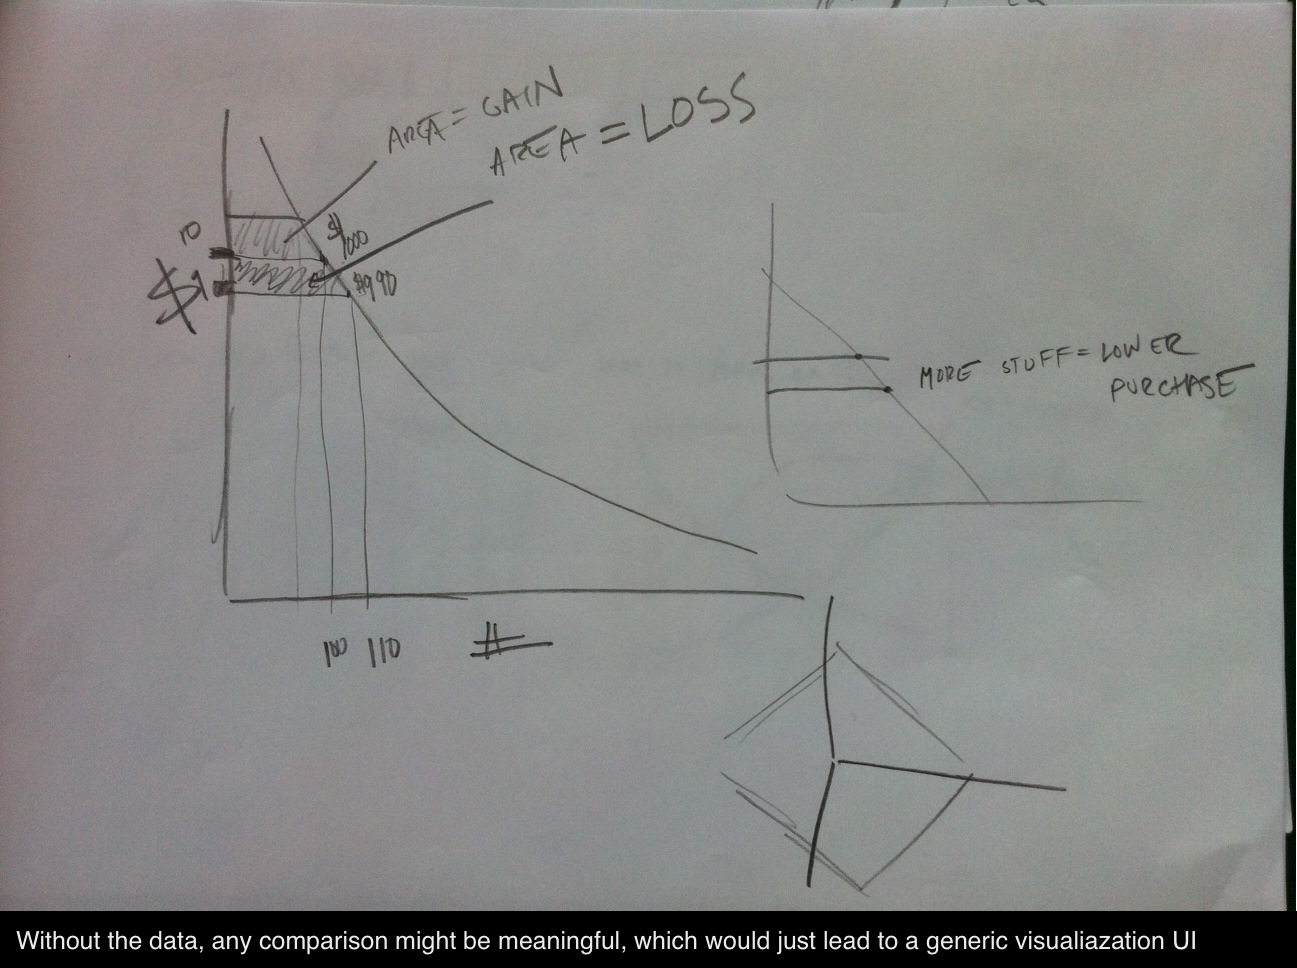 AREA = GAIN
AREA = LOSS
10
$1000
$9
$990
MORE STUFF = LOWER
PURCHASE
100 110 #
Without the data, any comparison might be meaningful, which would just lead to a generic visualiazation UI